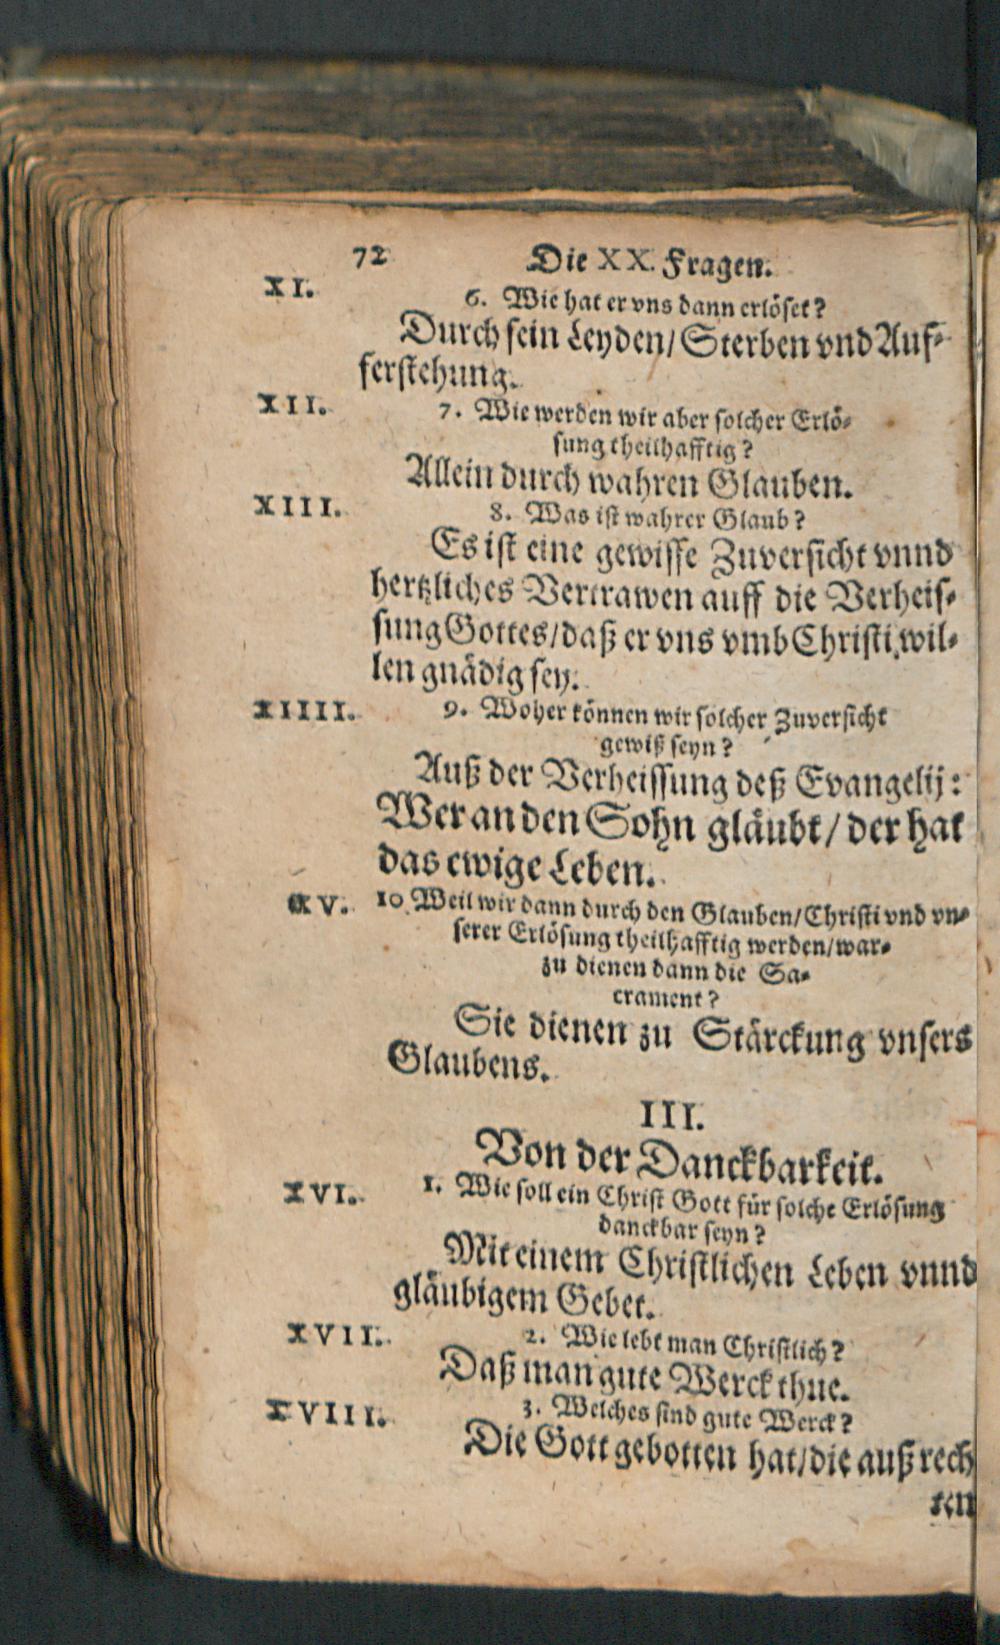 72 Die XX. Fragen.
XI. 6. Wie hat er vns dann erlöset?
Durch sein Leyden/ Sterben vnd Auf-
ferstehung.
XII. 7. Wie werden wir aber solcher Erlö-
sung theilhafftig?
Allein durch wahren Glauben.
XIII. 8. Was ist wahrer Glaub?
Es ist eine gewisse Zuversicht vnnd
hertzliches Vertrawen auff die Verheis-
sung Gottes/ daß er vns vmb Christi wil-
len gnädig sey.
XIIII. 9. Woher können wir solcher Zuversicht
gewiß seyn?
Auß der Verheissung deß Evangelij:
Wer an den Sohn gläubt/ der hat
das ewige Leben.
XV. 10. Weil wir dann durch den Glauben/ Christi vnd vn-
serer Erlösung theilhafftig werden/ war-
zu dienen dann die Sa-
crament?
Sie dienen zu Stärckung vnsers
Glaubens.
III.
Von der Danckbarkeit.
XVI. 1. Wie soll ein Christ Gott für solche Erlösung
danckbar seyn?
Mit einem Christlichen Leben vnnd
gläubigem Gebet.
XVII. 2. Wie lebt man Christlich?
Daß man gute Werck thue.
XVIII. 3. Welches sind gute Werck?
Die Gott gebotten hat/ die auß rech
ten